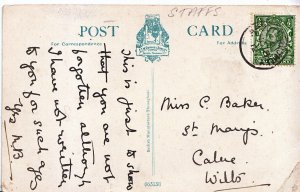 STAFFS
POST CARD
For Correspondence
For Address
This is just to show
that you are not
forgotten although
I have not written
to you for such ages
Miss C. Baker.
St Mary's
Calne
Wilts